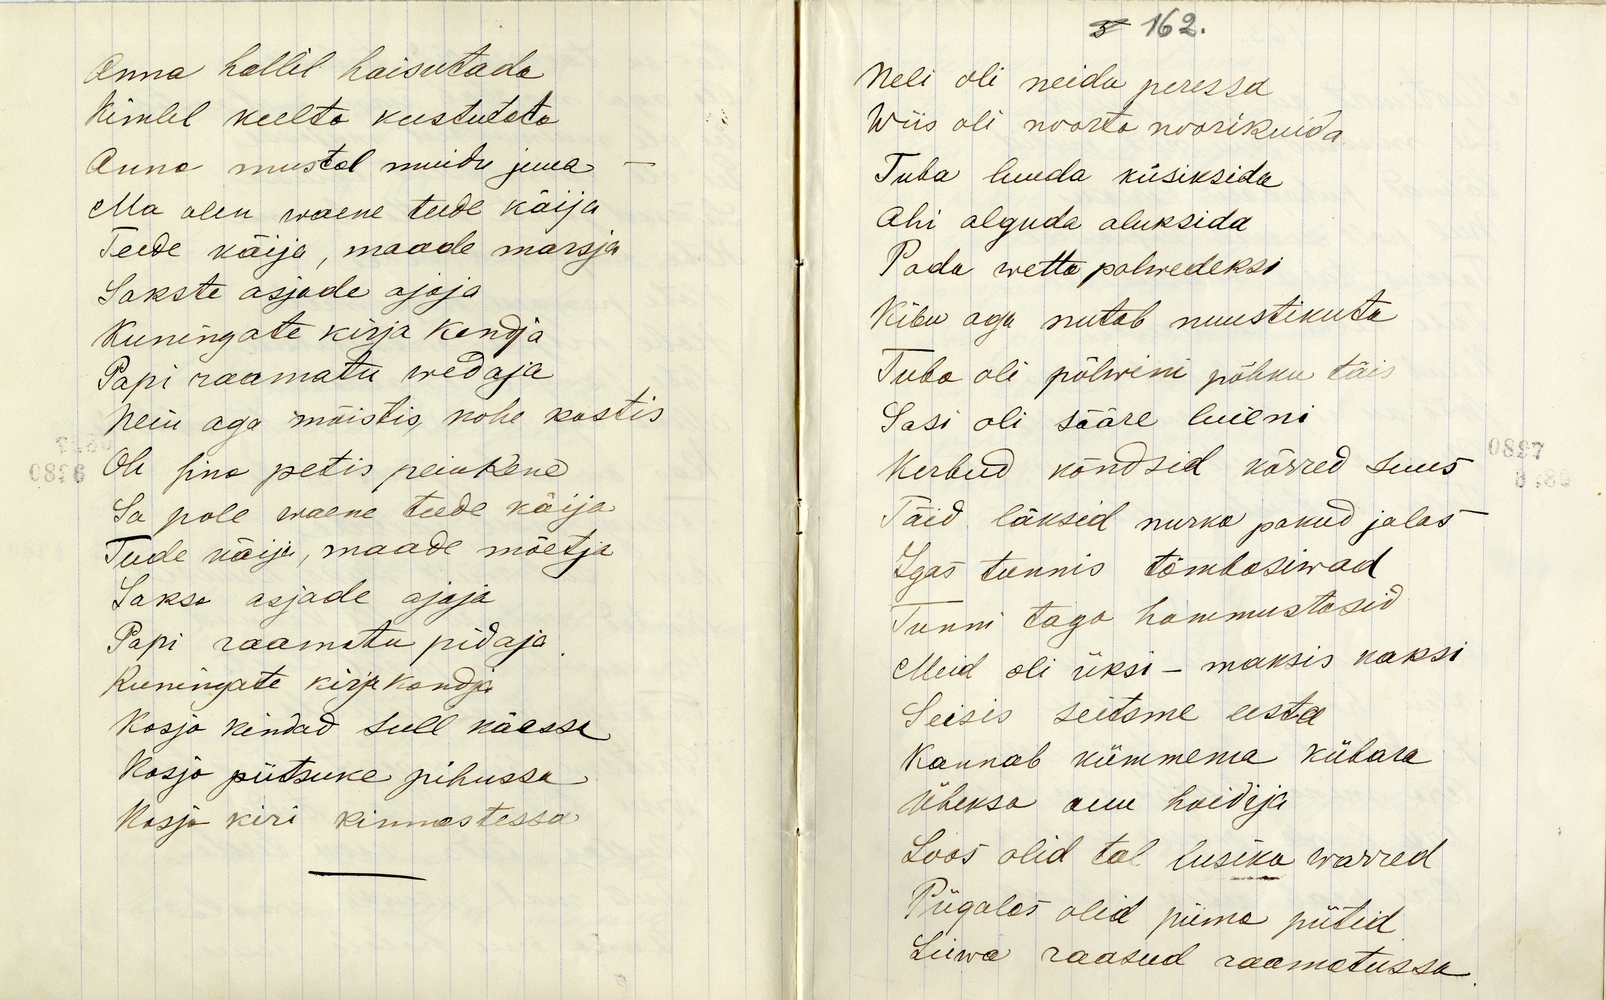 Anna hallil haisutada
Kimlil keelta keestutata
Anna mustal muidu juua —
Ma olen waene teede käija
Teede käija, maade marsja
Sakste asjade ajaja
Kuningate kirja kandja
Papi raamatu wedaja
Neiu aga mõistis, kohe kostis
Oh sina petis peiukene
Sa pole waene teede käija
Teede käija, maade mõetja
Saksa asjade ajaja
Papi raamatu pidaja.
Kuningate kirja kandja
Kosja kindad sull käessa
Kosja piitsuke pihussa
Kosja kiri kinnastessa
162.
Neli oli neidu peressa
Wiis oli noorta noorikuida
Tuba luuda küsiksida
Ahi alguda aluksida
Pada wetta palwedeksi
Kibu aga nutab nuustikuta
Tuba oli põlwini põhku täis
Sasi oli sääre luieni
Kerbud kõndsid kõrred suus
Täid läksid nurka pakud jalas
Igas tunnis tõmbasiwad
Tunni taga hammustasid
Meid oli üksi – maksis kaksi
Seisis seitsme eesta
Kannab kümmema kübara
Üheksa auu hoidija
Soos olid tal lusika warred
Pügalas olid piima pütid
Liiwa raasud raamatussa.
0827